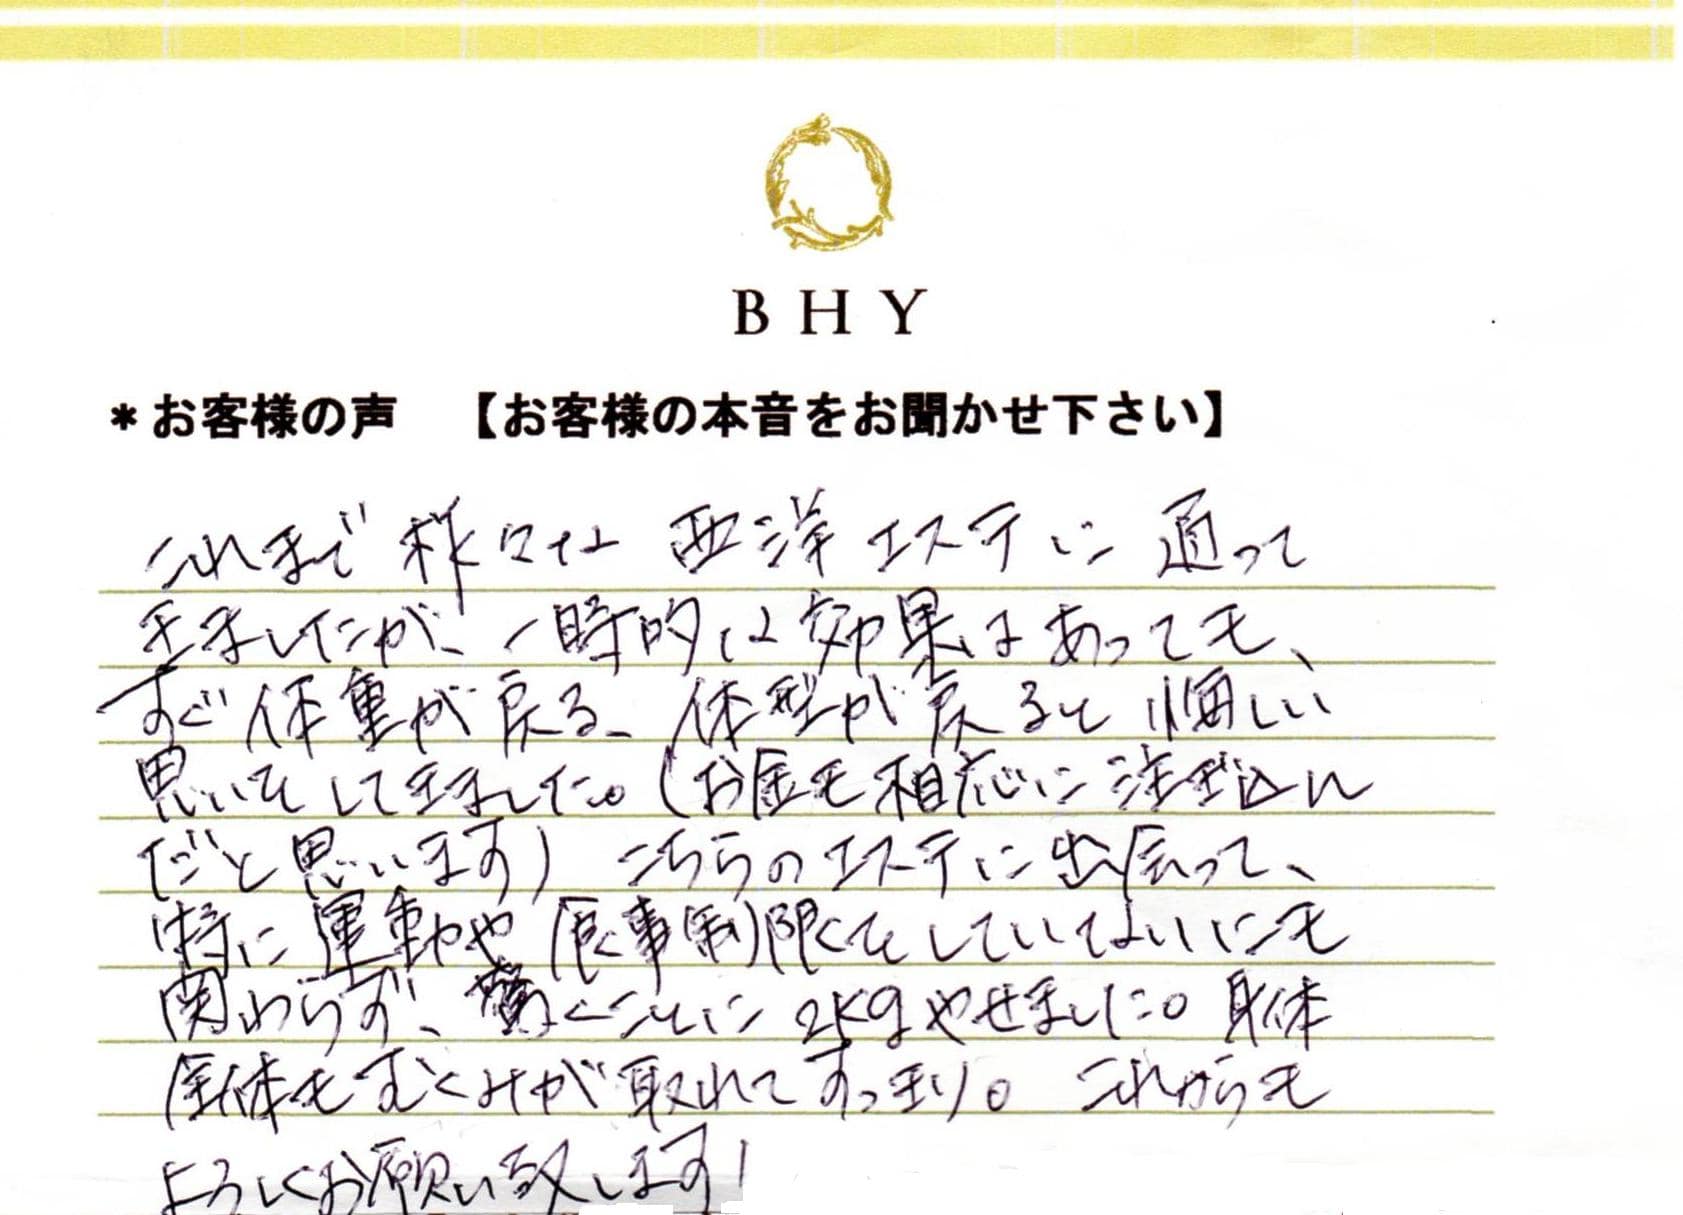 BHY
*お客様の声 【お客様の本音をお聞かせ下さい】
これまで様々な西洋エステに通って
きましたが、一時的に効果はあっても、
すぐ体重が戻る、体型が戻ると悔しい
思いをしてきました。(お金も相応に注ぎ込ん
だと思います) こちらのエステに出会って、
特に運動や食事制限をしていないにも
関わらず、驚くことに2kgやせました。身体
全体もむくみが取れてすっきり。これからも
よろしくお願い致します!